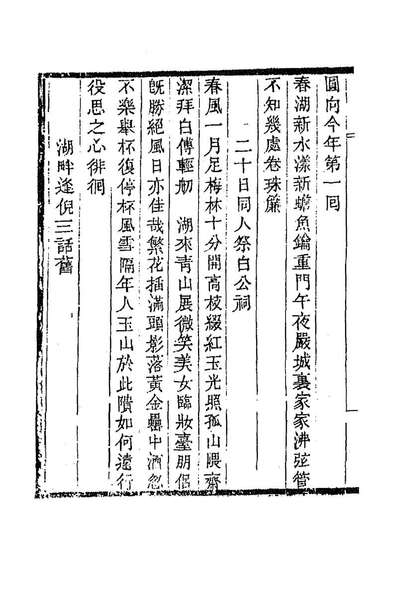 圓向今年第一回
春湖新水漾新蟾魚鑰重門午夜嚴城裏家家沸弦管
不知幾處卷珠簾
二十日同人祭白公祠
春風一月足梅林十分開高枝綴紅玉光照孤山隈齋
潔拜白傅輕舠 湖來青山展微笑美女臨妝臺朋侶
旣勝絕風日亦佳哉繁花插滿頭影落黃金罍中酒忽
不樂舉杯復停杯風雪隔年人玉山於此隤如何遠行
役思之心徘徊
湖畔逢倪三話舊